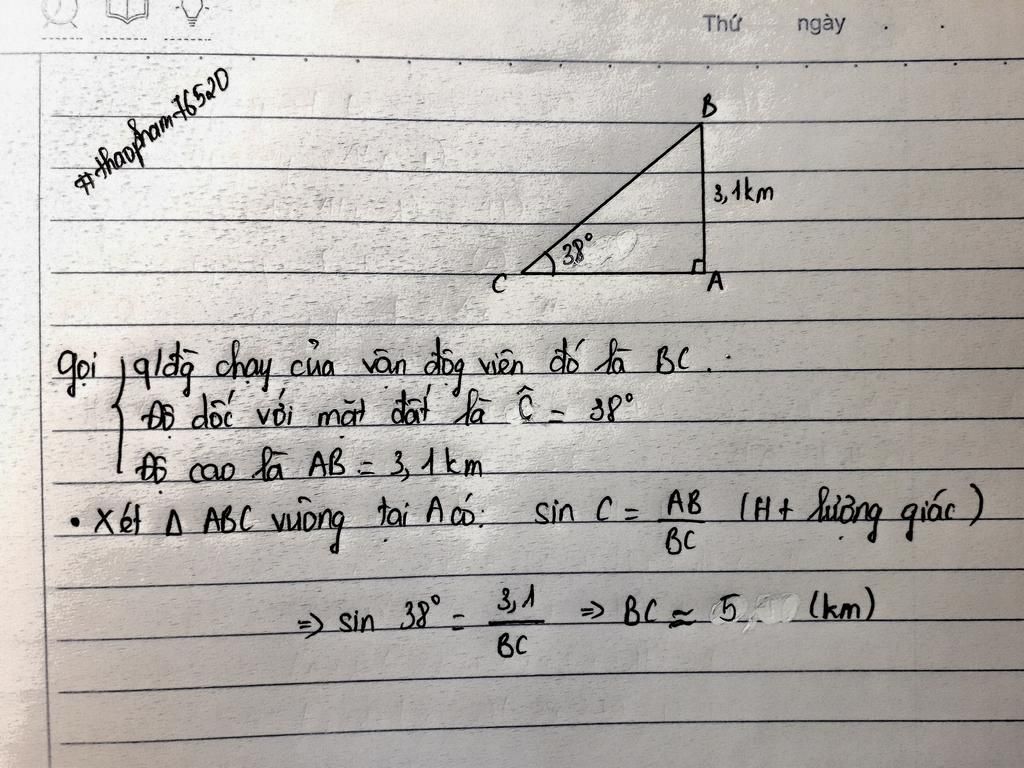 Thứ ngày . .
#thaopham76520
B
3,1km
38°
C
A
gọi q/đg̃ chạy của vận độg viên đó là BC.
Độ dốc với mặt đất là Ĉ = 38°
Độ cao là AB = 3,1km
• Xét Δ ABC vuông tại A có: sin C = AB/BC (Ht lượng giác)
=> sin 38° = 3,1/BC => BC ≈ 5, (km)